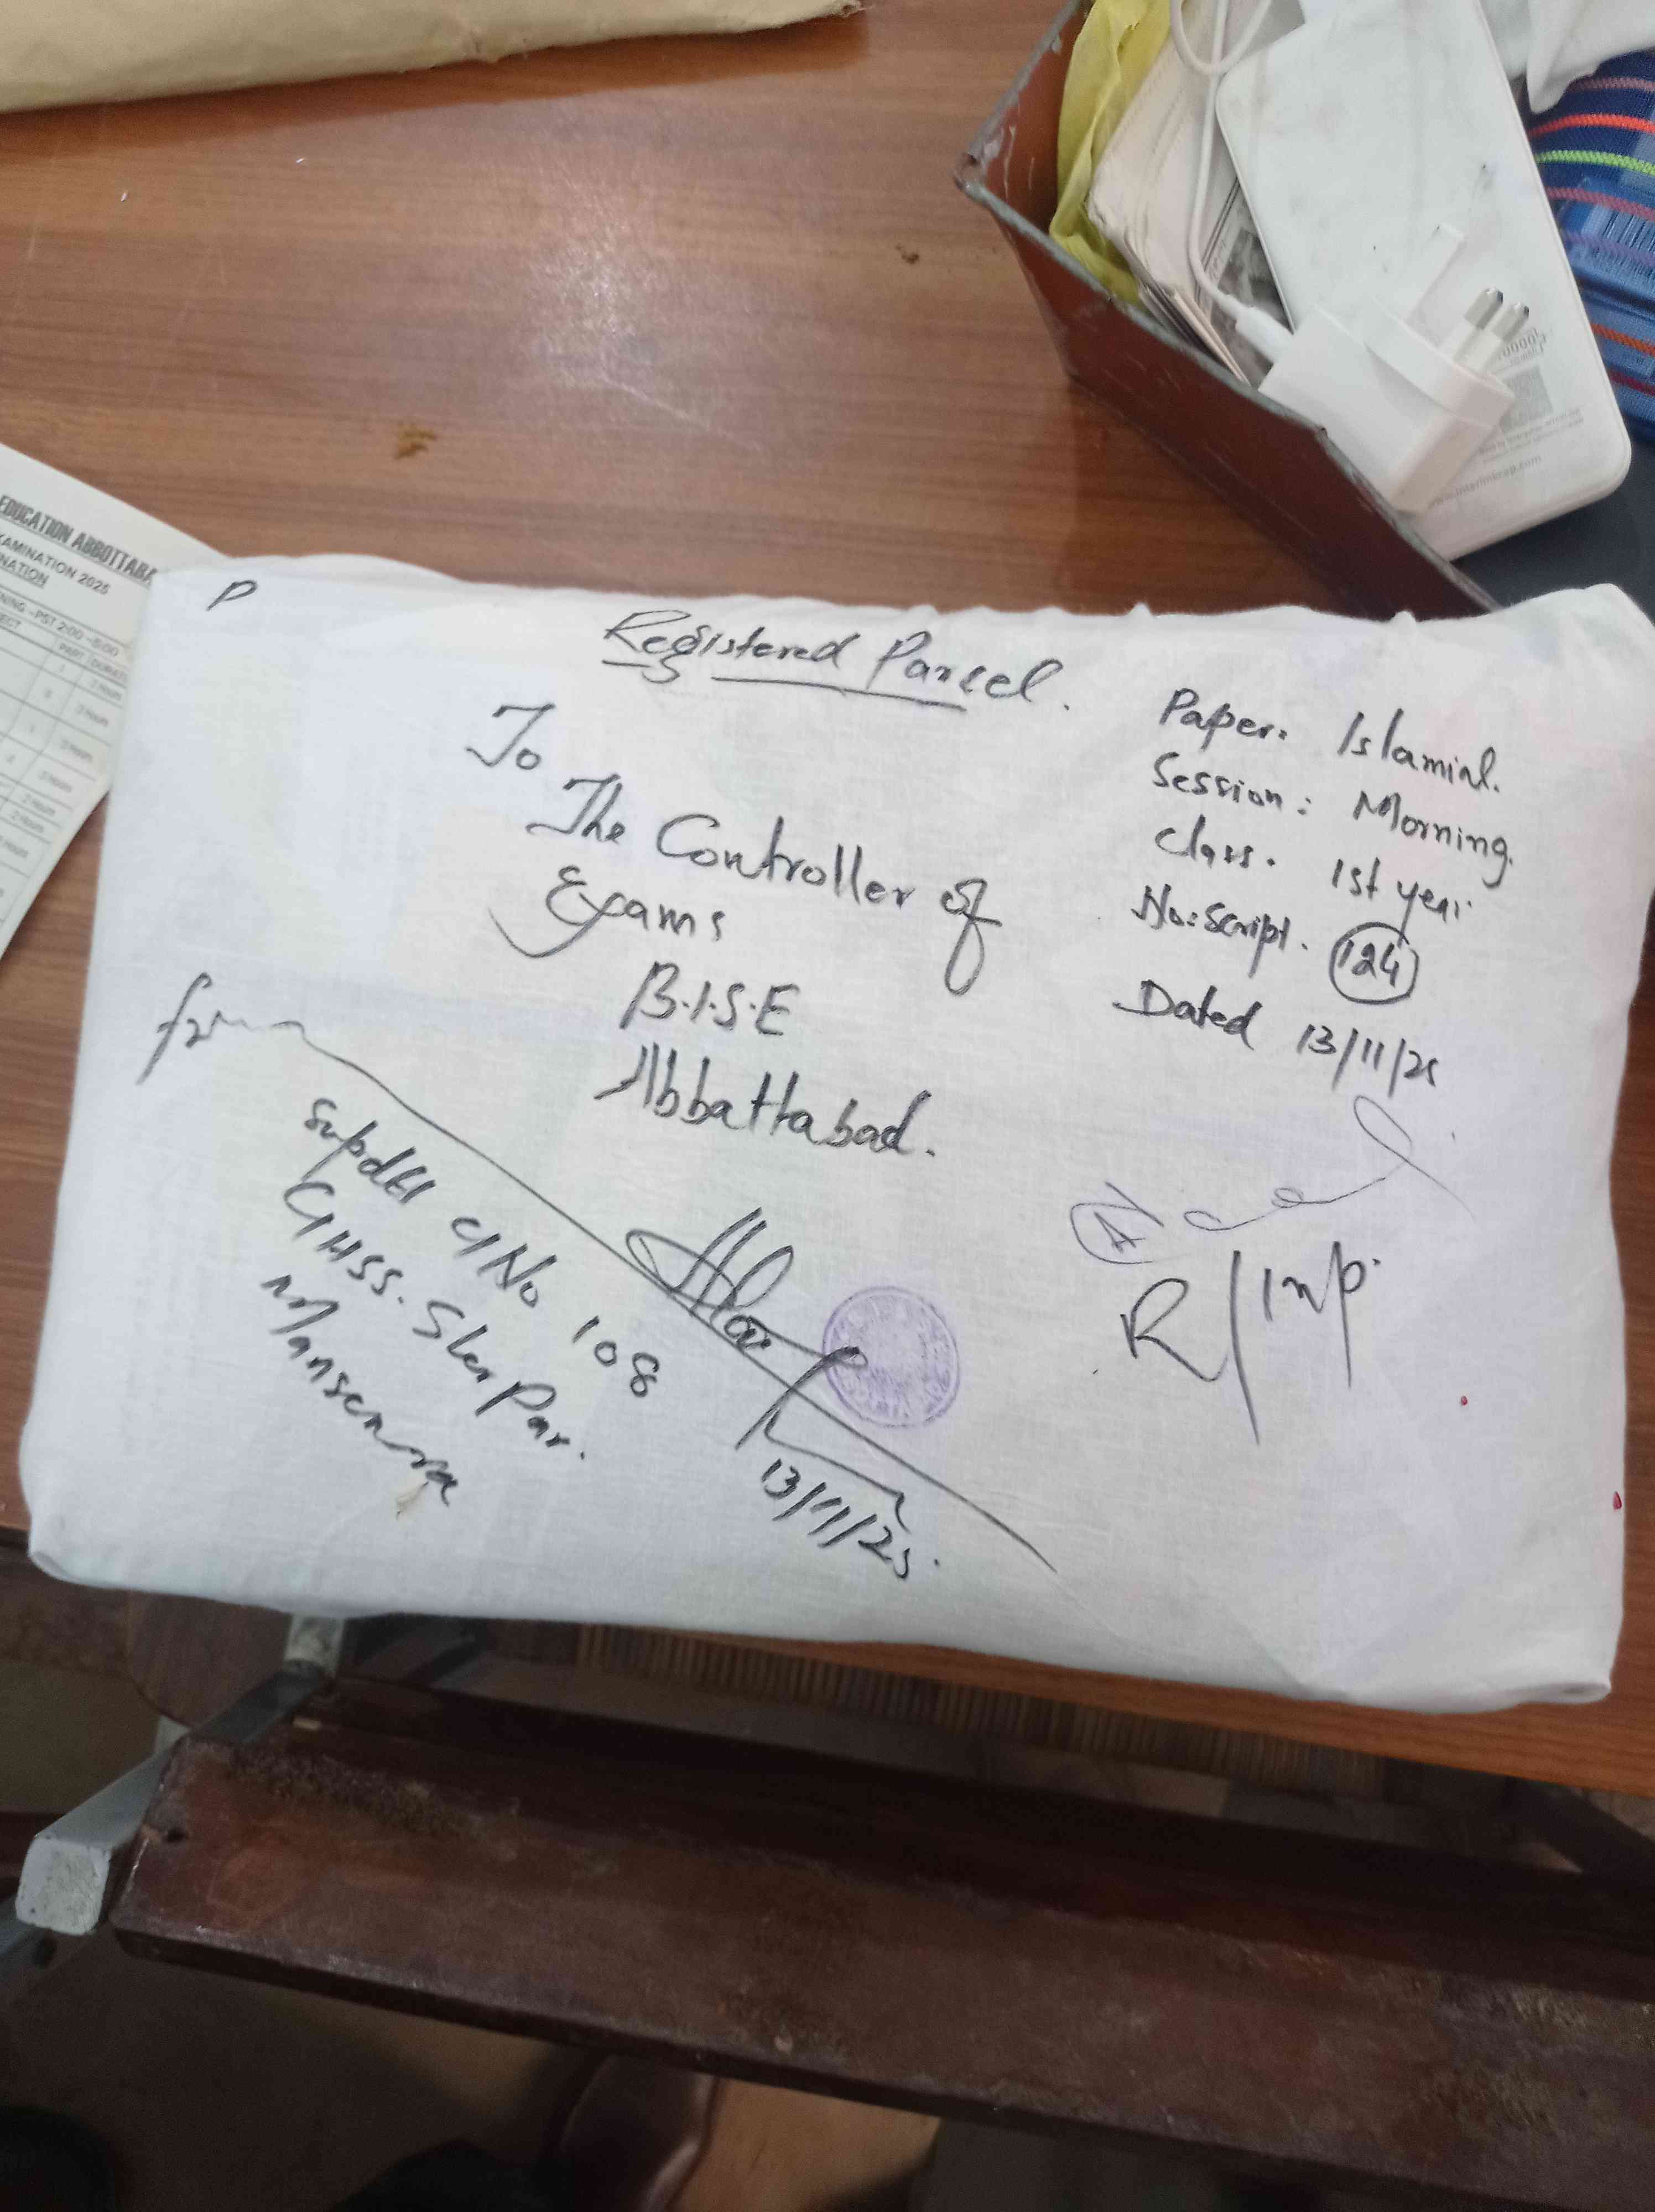 EDUCATION ABBOTTABA
EXAMINATION 2025
NATION
NING -PST 2:00 -5:00
ECT
PART
2 Hours
3 Hours
3 Hours
3 Hours
2 Hours
2 Hours
P
Registered Parcel.
To
The Controller of
Exams
B.I.S.E
Abbattabad.
Paper. Islamial.
Session: Morning.
Class. 1st year
No:Script. 124
Dated 13/11/25
from
Supdtt C/No 108
GHSS. Sher Par.
Mansehra
13/11/25.
A
R/Imp.